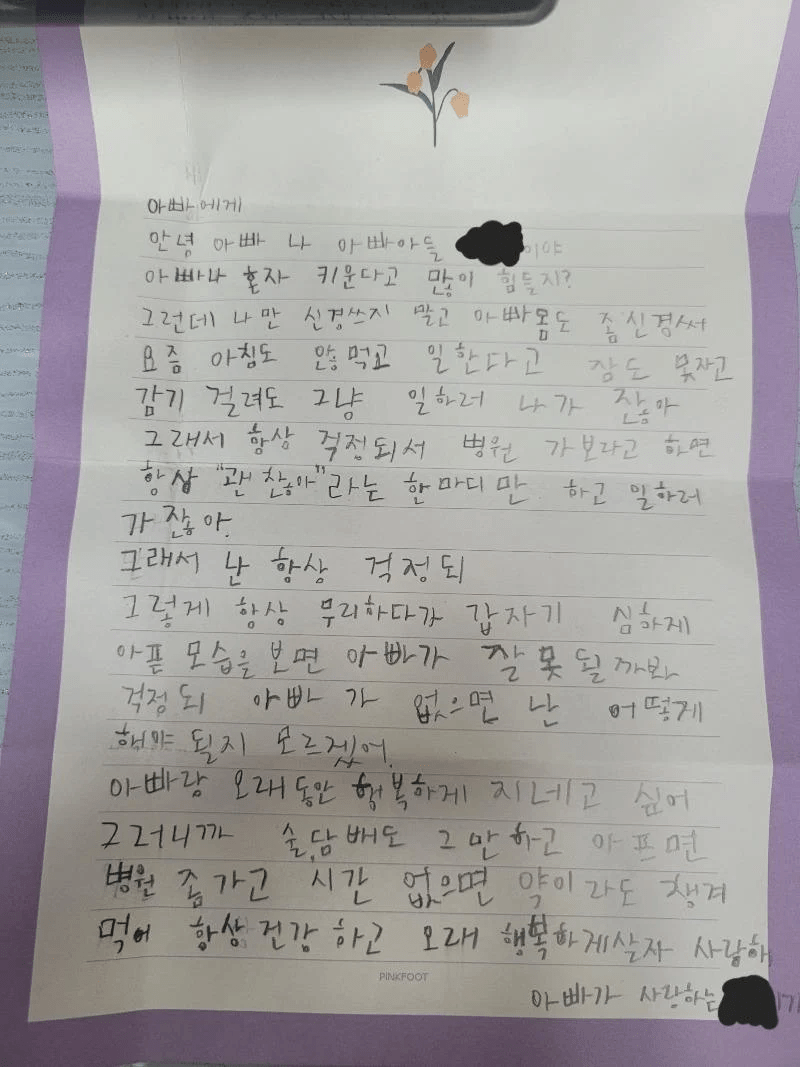 아빠에게
안녕 아빠 나 아빠아들 이야
아빠나 혼자 키운다고 많이 힘들지?
그런데 나만 신경쓰지 말고 아빠몸도 좀신경써
요즘 아침도 않먹고 일한다고 잠도 못자고
감기 걸려도 그냥 일하러 나가 잖아
그래서 항상 걱정되서 병원 가보라고 하면
항상 "괜찬아"라는 한마디만 하고 일하러
가잖아.
그래서 난 항상 걱정되
그렇게 항상 무리하다가 갑자기 심하게
아픈 모습을 보면 아빠가 잘못될까봐
걱정되 아빠가 없으면 난 어떻게
해야 될지 모르겠어.
아빠랑 오래동안 행복하게 지네고 싶어
그러니까 술,담배도 그만하고 아프면
병원 좀가고 시간 없으면 약이라도 챙겨
먹어 항상건강하고 오래 행복하게살자 사랑해
PINKFOOT
아빠가 사랑하는